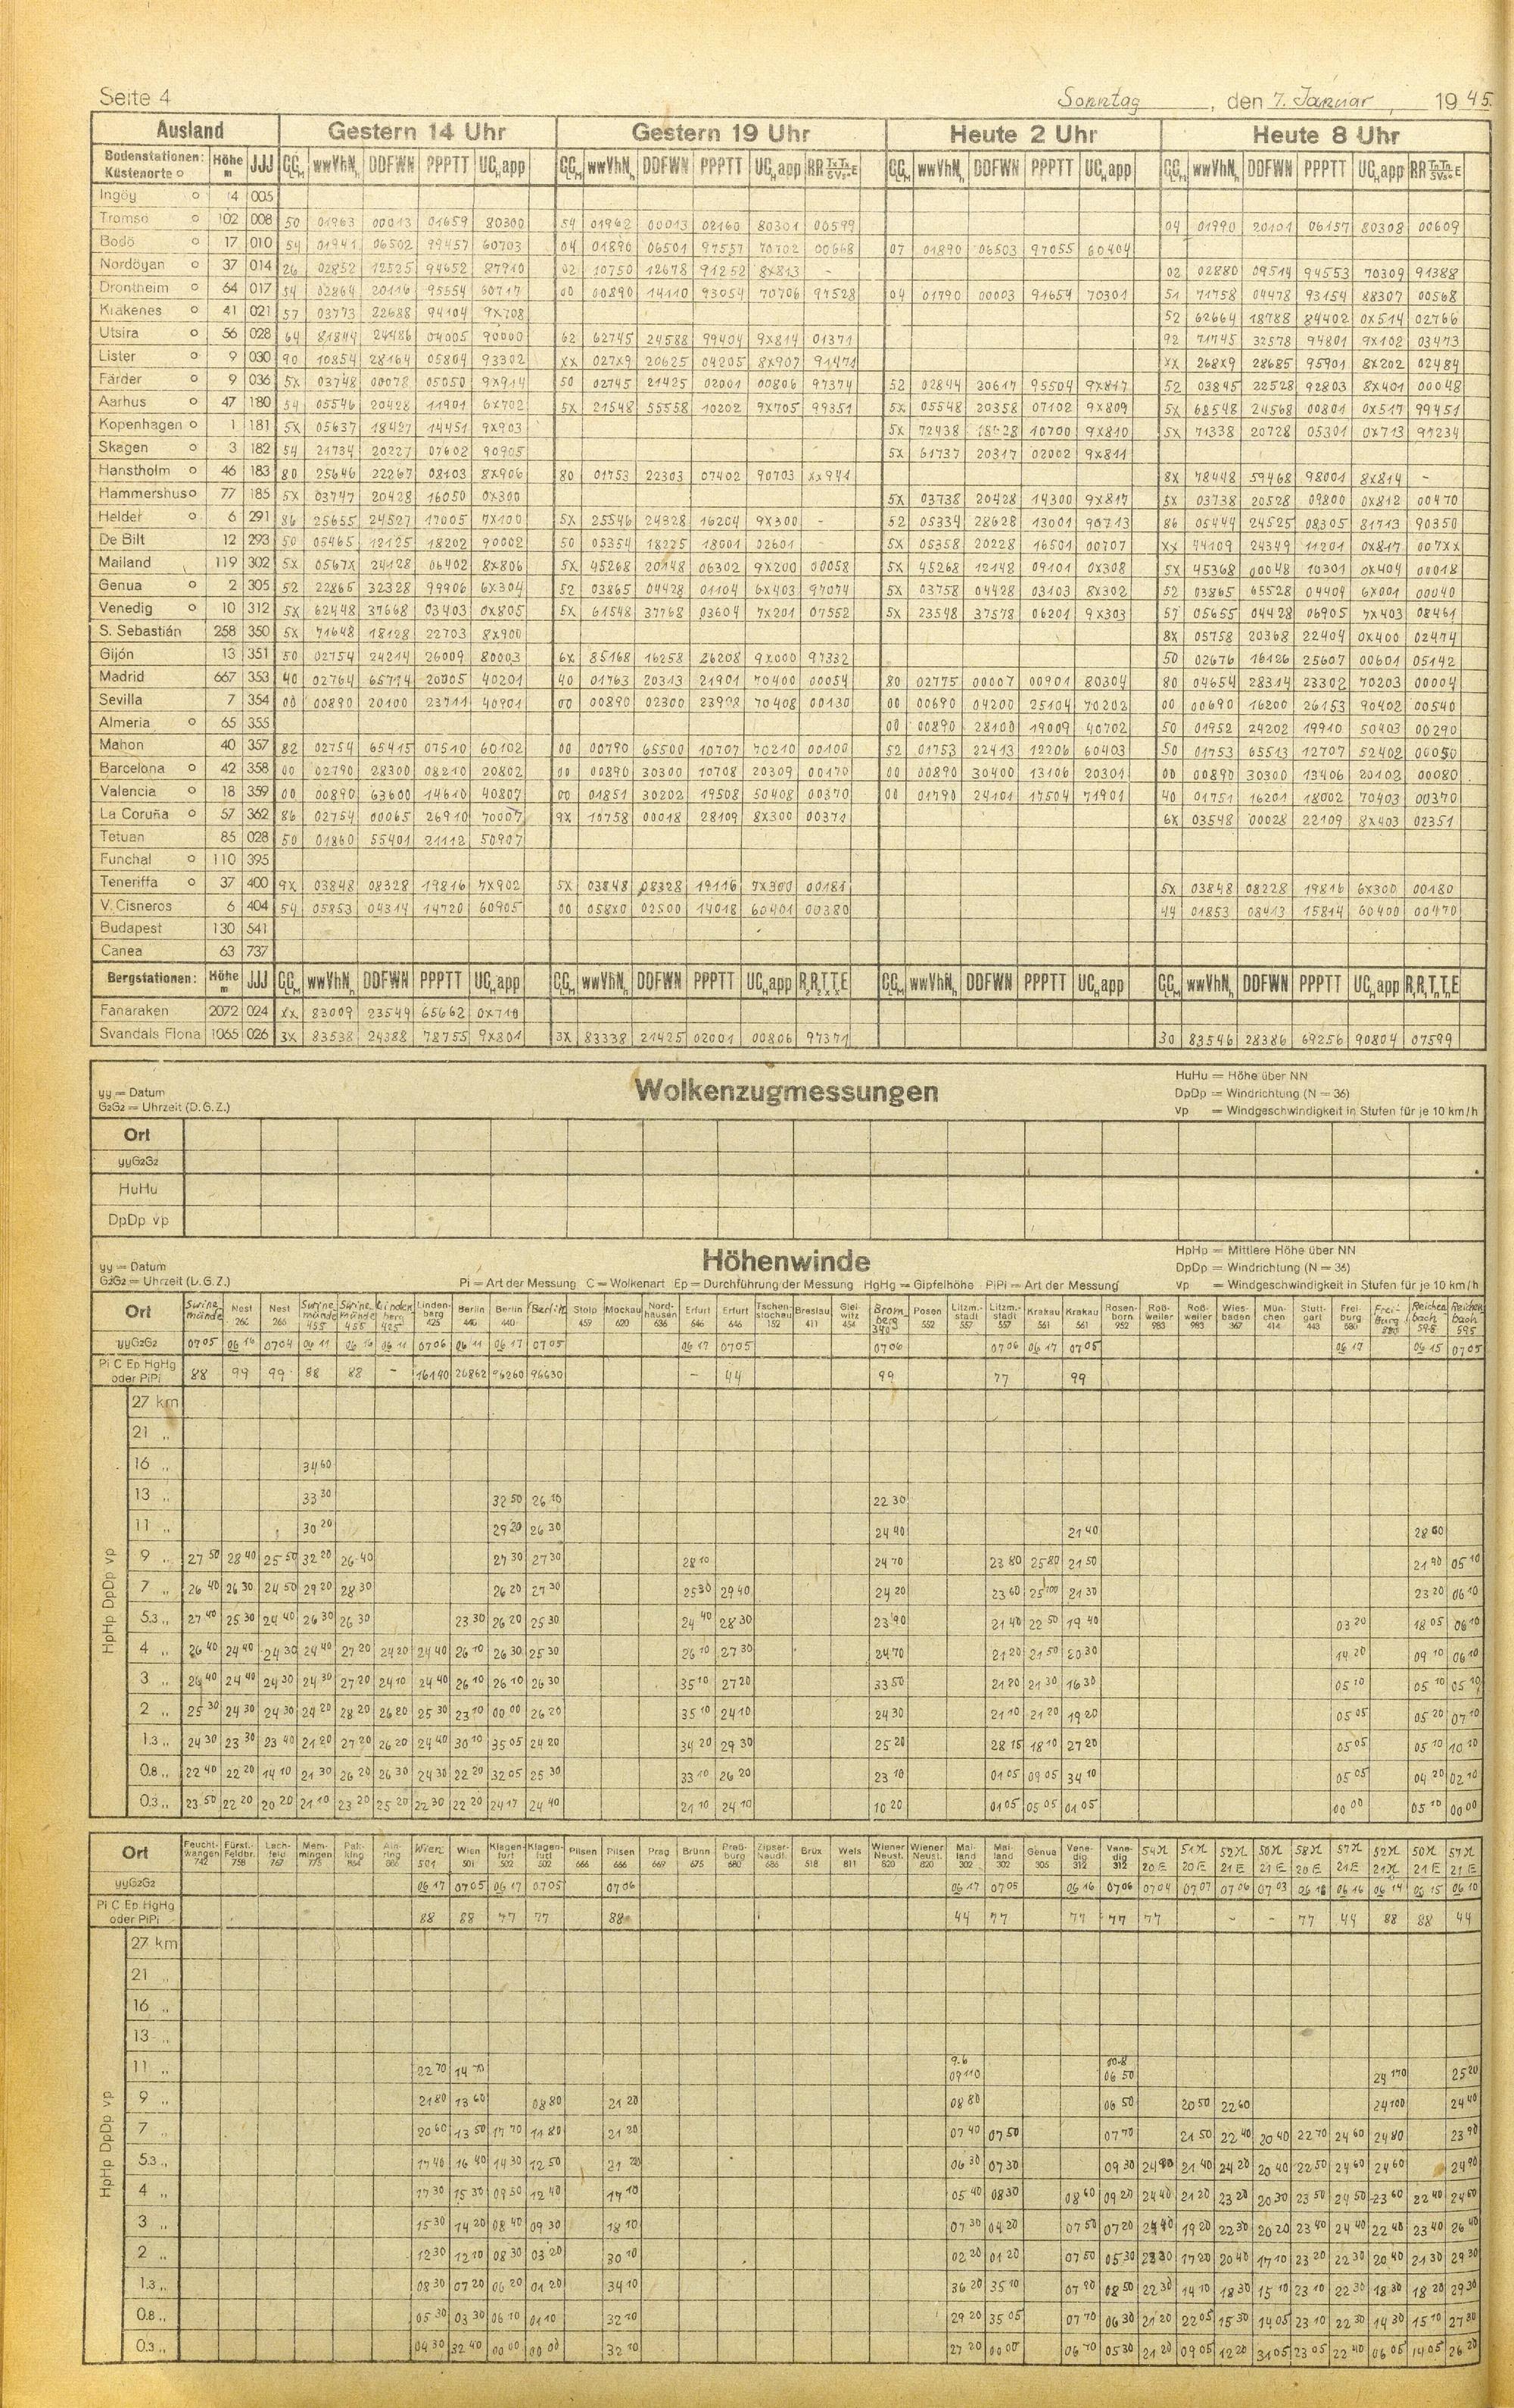 Seite 4 Sonntag, den 7. Januar, 1945.
Ausland Gestern 14 Uhr Gestern 19 Uhr Heute 2 Uhr Heute 8 Uhr
Bodenstationen: Küstenorte o Höhe m JJJ
Ingöy o 14 005
Tromsö o 102 008 50 01963 00013 01659 80300 54 01962 00013 02160 80301 00599 04 01990 20101 06157 80308 00609
Bodö o 17 010 54 01941 06502 99457 60703 04 01890 06501 97557 70702 00668 07 01890 06503 97055 60404
Nordöyan o 37 014 26 02852 12525 94652 87910 02 10750 12678 91252 8x813 - 02 02880 09514 94553 70309 91388
Drontheim o 64 017 54 02864 20116 95554 60717 00 00890 14110 93054 70706 97528 04 01790 00003 91654 70301 51 71758 04478 93154 88307 00568
Krakenes o 41 021 57 03773 22688 94104 9x708 52 62664 18788 84402 0x514 02766
Utsira o 56 028 64 81844 24486 04005 90000 62 62745 24588 99404 9x814 01371 92 71745 32578 94801 9x102 03473
Lister o 9 030 90 10854 28164 05804 93302 xx 027x9 20625 04205 8x907 91471 xx 268x9 28685 95901 8x202 02484
Färder o 9 036 5x 03748 00078 05050 9x914 50 02745 21425 02001 00806 97374 52 02844 30617 95504 9x817 52 03845 22528 92803 8x401 00048
Aarhus o 47 180 54 05546 20428 11901 6x702 5x 21548 55558 10202 9x705 99351 5x 05548 20358 07102 9x809 5x 68548 24568 00801 0x517 99451
Kopenhagen o 1 181 5x 05637 18427 14451 9x903 5x 72438 18428 10700 9x810 5x 71338 20728 05301 0x713 91234
Skagen o 3 182 54 21734 20227 07602 90905 5x 61737 20317 02002 9x811
Hanstholm o 46 183 80 25646 22267 08103 8x906 80 01753 22303 07402 90703 xx941 8x 78448 59468 98001 8x814 -
Hammershus o 77 185 5x 03747 20428 16050 0x300 5x 03738 20428 14300 9x817 5x 03738 20528 09800 0x812 00470
Helder o 6 291 86 25655 24527 17005 7x100 5x 25546 24328 16204 9x300 - 52 05334 28628 13001 90713 86 05444 24525 08305 81713 90350
De Bilt 12 293 50 05465 12125 18202 90002 50 05354 18225 18001 02601 5x 05358 20228 16501 00707 xx 44109 24349 11201 0x817 007xx
Mailand 119 302 5x 0567x 24128 06402 8x806 5x 45268 20148 06302 9x200 00058 5x 45268 12148 09101 0x308 5x 45368 00048 10301 0x404 00018
Genua o 2 305 52 22865 32328 99906 6x304 52 03865 04428 01104 6x403 97074 5x 03758 04428 03103 8x302 52 03865 65528 04409 6x001 00040
Venedig o 10 312 5x 62448 37668 03403 0x805 5x 61548 37768 03604 7x201 07552 5x 23548 37578 06201 9x303 57 05655 04428 06905 7x403 08461
S. Sebastián 258 350 5x 71648 18128 22703 8x900 8x 05758 20368 22404 0x400 02474
Gijón 13 351 50 02754 24214 26009 80003 6x 85168 16258 26208 9x000 97332 50 02676 16126 25607 00601 05142
Madrid 667 353 40 02764 65714 20005 40201 40 01763 20313 21901 70400 00054 80 02775 00007 00901 80304 80 04654 28314 23302 70203 00004
Sevilla 7 354 00 00890 20100 23711 40901 00 00890 02300 23908 70408 00130 00 00690 04200 25104 70202 00 00690 16200 26153 90402 00540
Almeria o 65 355 00 00890 28100 19009 40702 50 01952 24202 19910 50403 00290
Mahon 40 357 82 02754 65415 07510 60102 00 00790 65500 10707 70210 00100 52 01753 22413 12206 60403 50 01753 65513 12707 52402 00050
Barcelona o 42 358 00 02790 28300 08210 20802 00 00890 30300 10708 20309 00170 00 00890 30400 13106 20301 00 00890 30300 13406 20102 00080
Valencia o 18 359 00 00890 63600 14610 40807 00 01851 30202 19508 50408 00370 00 01790 24101 17504 71901 40 01751 16201 18002 70403 00370
La Coruña o 57 362 86 02754 00065 26910 70007 9x 10758 00018 28109 8x300 00371 6x 03548 00028 22109 8x403 02351
Tetuan 85 028 50 01860 55401 21112 50907
Funchal o 110 395
Teneriffa o 37 400 9x 03848 08328 19816 7x902 5x 03848 08328 19116 7x300 00181 5x 03848 08228 19816 6x300 00180
V. Cisneros 6 404 54 05853 04314 14720 60905 00 058x0 02500 14018 60401 00380 44 01853 08413 15814 60400 00470
Budapest 130 541
Canea 63 737
Bergstationen: Höhe m JJJ
Fanaraken 2072 024 xx 83009 23549 65662 0x710
Svandals Flona 1065 026 3x 83538 24388 78755 9x801 3x 83338 21425 02001 00806 97371 30 83546 28386 69256 90804 07599
Wolkenzugmessungen
yy = Datum
G2G2 = Uhrzeit (D.G.Z.)
HuHu = Höhe über NN
DpDp = Windrichtung (N = 36)
vp = Windgeschwindigkeit in Stufen für je 10 km/h
Ort
yyG2G2
HuHu
DpDp vp
Höhenwinde
yy = Datum
G2G2 = Uhrzeit (D.G.Z.)
Pi = Art der Messung C = Wolkenart Ep = Durchführung der Messung HgHg = Gipfelhöhe PiPi = Art der Messung
HpHp = Mittlere Höhe über NN
DpDp = Windrichtung (N = 36)
vp = Windgeschwindigkeit in Stufen für je 10 km/h
Ort Swinemünde Nest 266 Nest 266 Swinemünde 455 Swinemünde 455 Lindenberg 425 Lindenberg 425 Berlin 440 Berlin 440 Berlin Stolp 459 Mockau 620 Nordhausen 636 Erfurt 646 Erfurt 646 Tschenstochau 152 Breslau 411 Gleiwitz 454 Bromberg 340 Posen 552 Litzm.-stadt 557 Litzm.-stadt 557 Krakau 561 Krakau 561 Rosenborn 952 Roßweiler 983 Roßweiler 983 Wiesbaden 367 München 414 Stuttgart 443 Freiburg 580 Freiburg 580 Reichenbach 595 Reichenbach 595
yyG2G2 0705 0616 0704 0611 0616 0611 0706 0611 0617 0705 0617 0705 0706 0706 0617 0705 0617 0615 0705
Pi C Ep HgHg oder PiPi 88 99 99 88 88 - 16190 26862 96260 96630 - 44 99 77 99
HpHp DpDp vp
27 km
21 „
16 „ 3460
13 „ 3330 3250 2610 2230
11 „ 3020 2920 2630 2440 2140 2800
9 „ 2750 2840 2550 3220 2640 2730 2730 2810 2470 2380 2580 2150 2190 0510
7 „ 2640 2630 2450 2920 2830 2620 2730 2530 2940 2420 2360 25100 2130 2320 0610
5.3 „ 2740 2530 2440 2630 2630 2330 2620 2530 2440 2830 2390 2140 2250 1940 0320 1805 0610
4 „ 2640 2440 2430 2440 2720 2420 2440 2610 2630 2530 2610 2730 2470 2120 2150 2030 1420 0910 0610
3 „ 2640 2440 2430 2430 2720 2410 2440 2610 2610 2630 3510 2720 3350 2120 2130 1630 0510 0510 0510
2 „ 2530 2430 2430 2420 2820 2620 2530 2310 0000 2620 3510 2410 2430 2110 2120 1920 0505 0520 0710
1.3 „ 2430 2330 2340 2120 2720 2620 2440 3010 3505 2420 3420 2930 2520 2815 1810 2720 0505 0510 1010
0.8 „ 2240 2220 1410 2130 2620 2630 2430 2220 3205 2530 3310 2620 2310 0105 0905 3410 0505 0420 0210
0.3 „ 2350 2220 2020 2110 2320 2520 2230 2220 2417 2440 2110 2410 1020 0105 0505 0105 0000 0510 0000
Ort Feuchtwangen 742 Fürst.-Feldbr. 758 Lechfeld 767 Memmingen 775 Ainring 886 Wien 501 Wien 501 Klagenfurt 502 Klagenfurt 502 Pilsen 666 Pilsen 666 Prag 669 Brünn 675 Preßburg 680 Zipser-Neudf. 686 Brüx 518 Wels 811 Wiener Neust. 820 Wiener Neust. 820 Mailand 302 Mailand 302 Genua 305 Venedig 312 Venedig 312 54N 20E 51N 20E 52N 21E 50N 21E 58N 20E 57N 21E 52N 21N 50N 21E 57N 21E
yyG2G2 0617 0705 0617 0705 0706 0617 0705 0616 0706 0704 0707 0706 0703 0618 0616 0614 0615 0610
Pi C Ep HgHg oder PiPi 88 88 77 77 88 44 77 77 77 77 - - 77 44 88 88 44
HpHp DpDp vp
27 km
21 „
16 „
13 „
11 „ 2270 1470 9.6 09110 10.8 0650 24170 2520
9 „ 2180 1360 0880 2120 0880 0650 2050 2260 24100 2440
7 „ 2060 1350 1770 1180 2120 0740 0750 0770 2150 2240 2040 2270 2460 2480 2390
5.3 „ 1740 1640 1430 1250 2120 0630 0730 0930 2480 2140 2420 2040 2250 2460 2460 2490
4 „ 1730 1530 0950 1240 1710 0540 0830 0860 0920 2440 2120 2320 2030 2350 2450 2360 2240 2460
3 „ 1530 1420 0840 0930 1810 0730 0420 0750 0720 2440 1920 2230 2020 2340 2440 2240 2340 2640
2 „ 1230 1210 0830 0320 3010 0220 0120 0750 0530 2330 1720 2040 1710 2320 2230 2040 2130 2930
1.3 „ 0830 0720 0620 0120 3410 3620 3510 0720 0850 2230 1410 1830 1510 2310 2230 1830 1820 2930
0.8 „ 0530 0330 0610 0110 3210 2920 3505 0770 0630 2120 2205 1530 1405 2310 2230 1430 1510 2730
0.3 „ 0430 3240 0000 0000 3210 2720 0000 0670 0530 2120 0905 1220 3105 2305 2240 0605 1405 2620